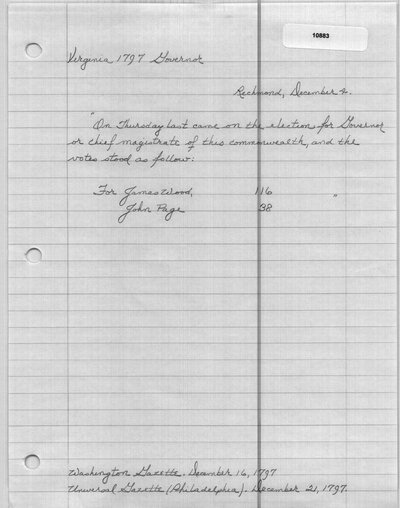 10883
Virginia 1797 Governor
Richmond, December 4.
"On Thursday last came on the election for Governor
or chief magistrate of this commonwealth, and the
votes stood as follow:
For James Wood, 116 "
John Page 38
Washington Gazette. December 16, 1797
Universal Gazette (Philadelphia). December 21, 1797.